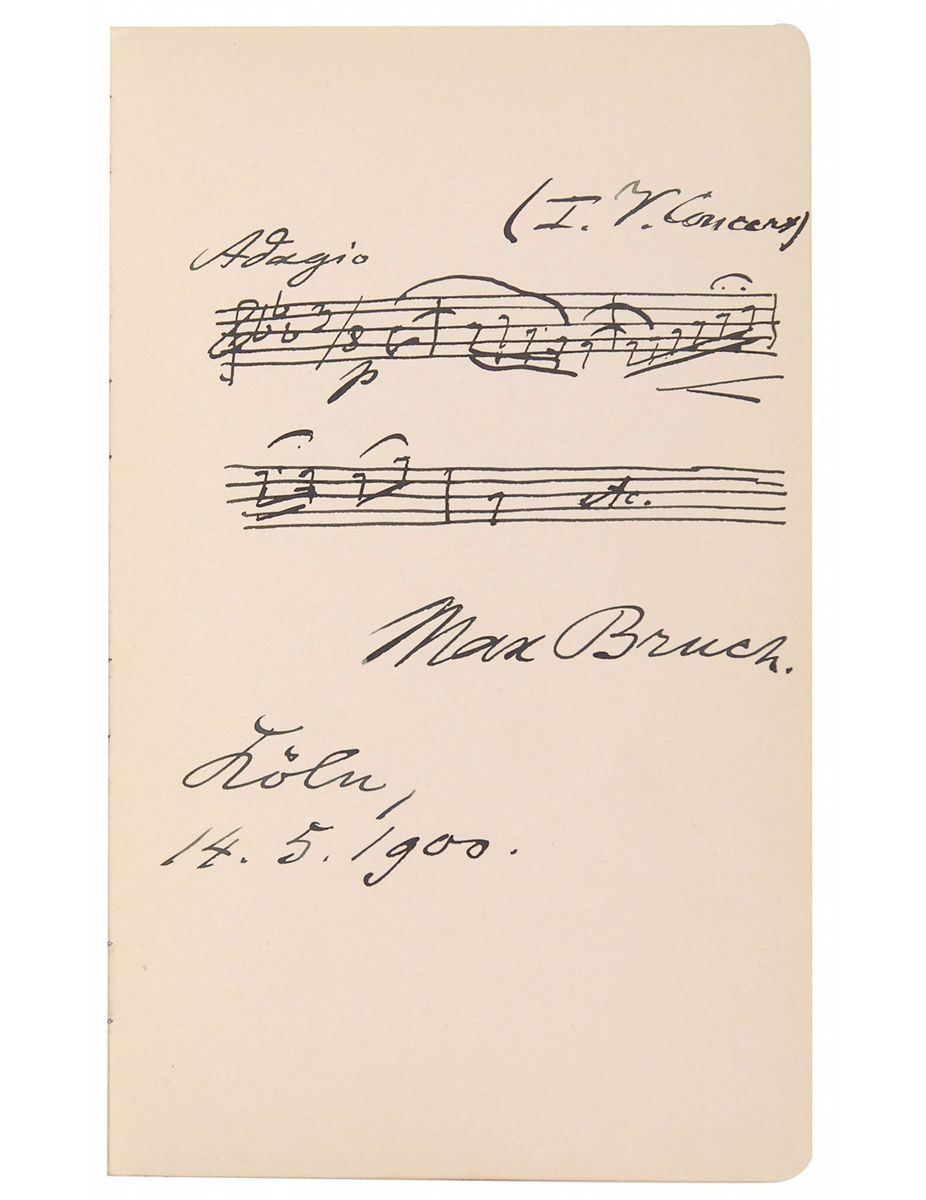 (I. V. Concert)
Adagio
3/8
p
&c.
Max Bruch.
Köln,
14. 5. 1900.